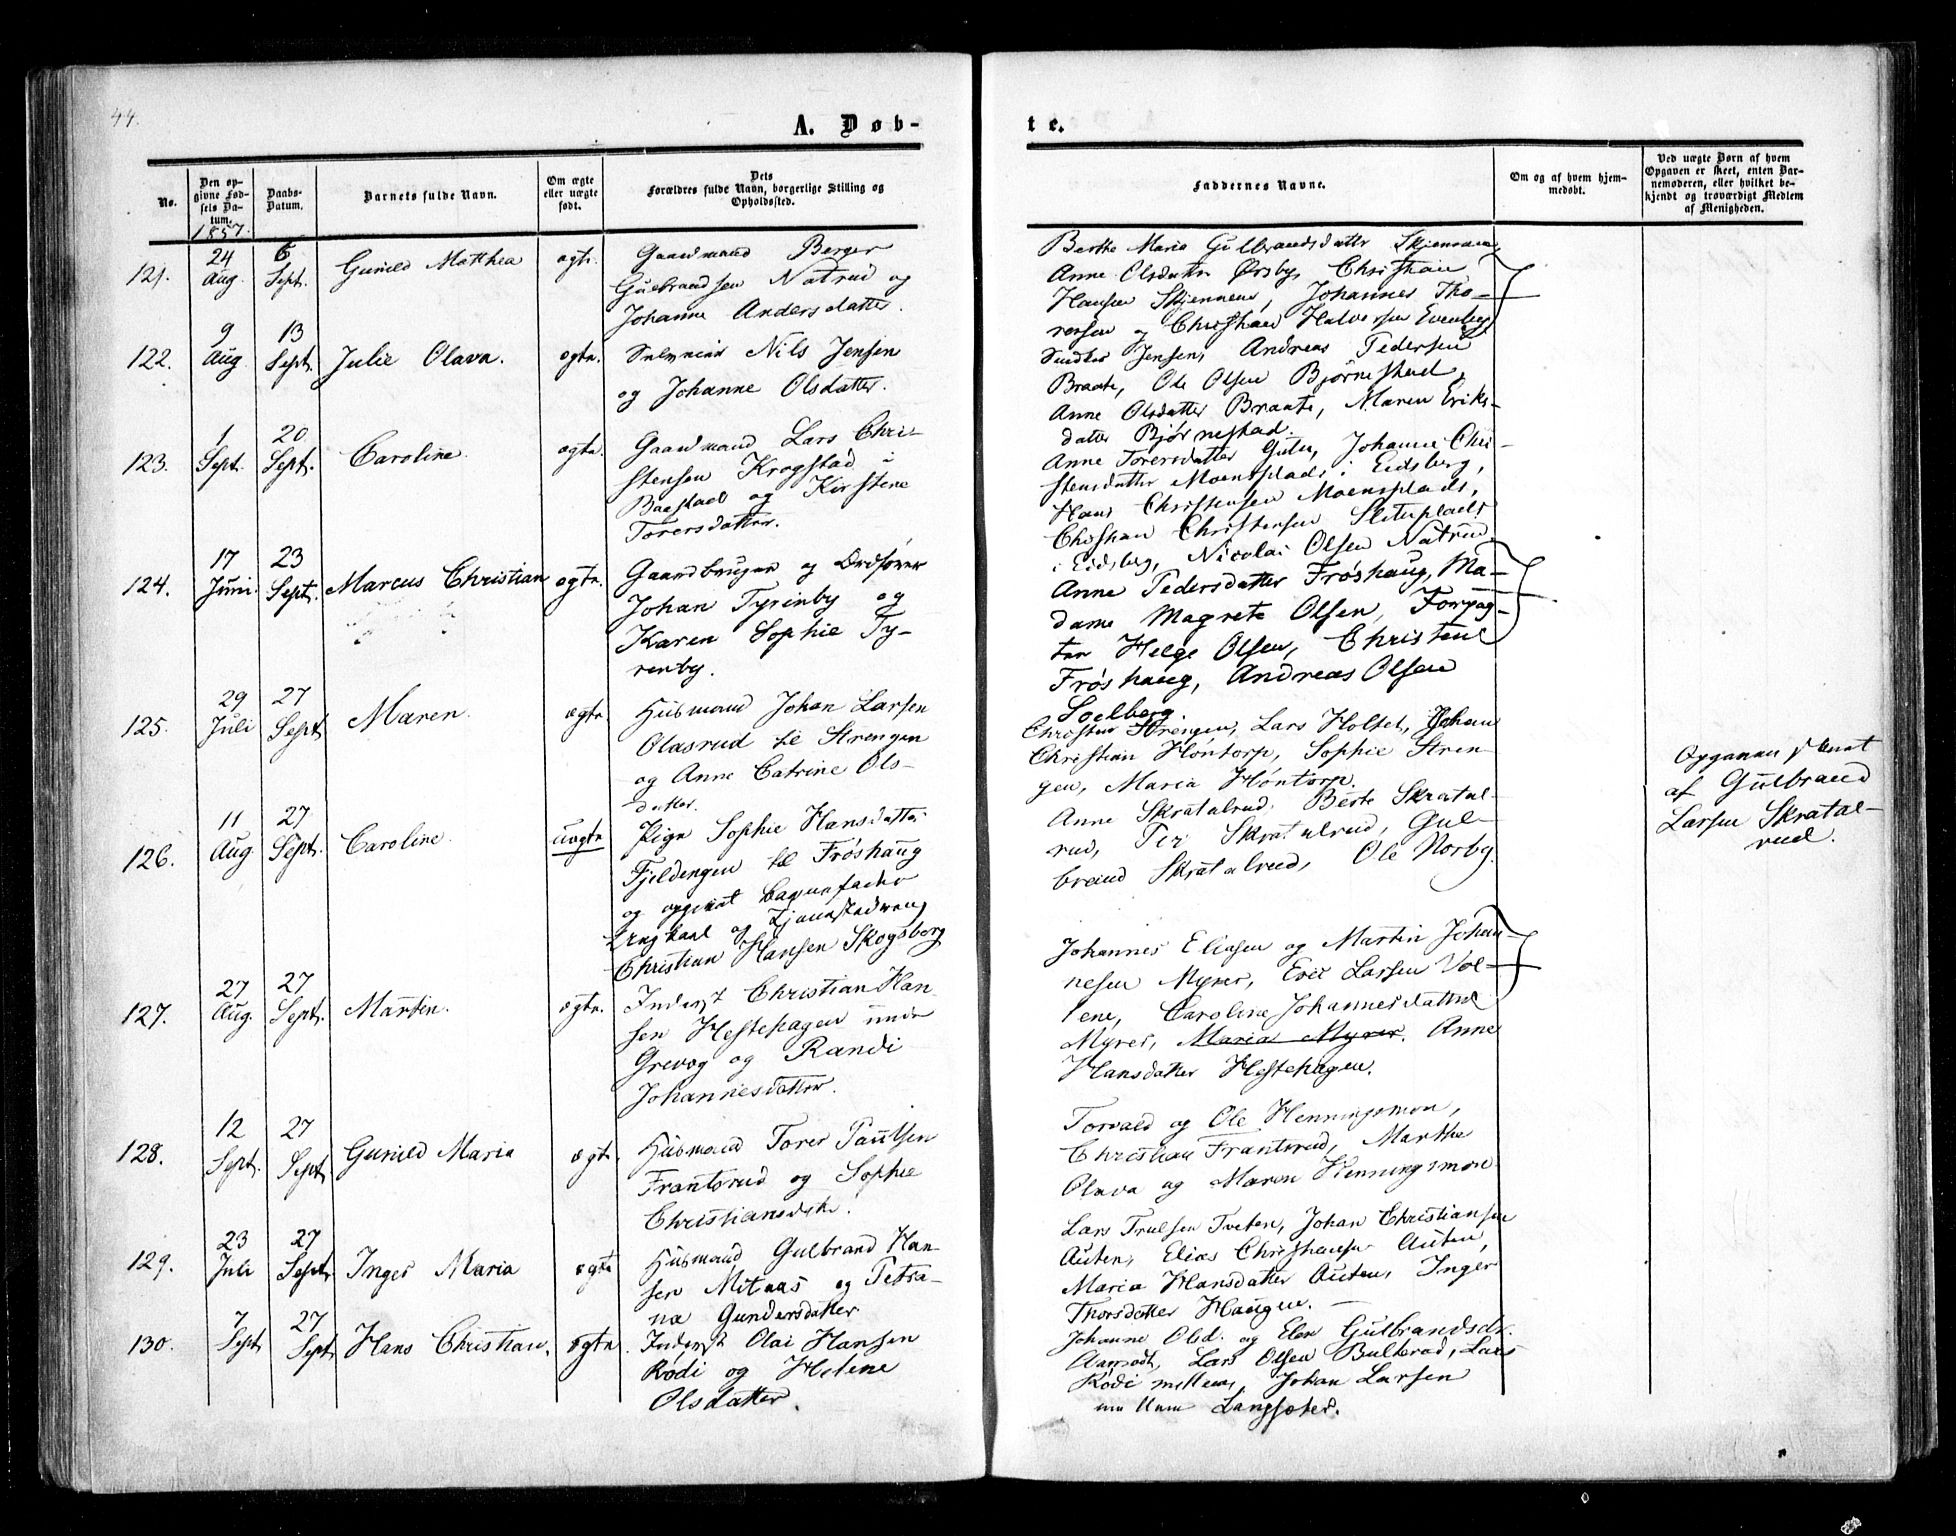 44.
A. Døb-
te.
No.
Den op-
givne Fød-
sels Da-
tum.
1857.
Daabs-
Datum.
Barnets fulde Navn.
Om ægte
eller uægte
født.
Dets
Forældres fulde Navn, borgerlige Stilling og
Opholdssted.
Faddernes Navne.
Om og af hvem hjem-
medøbt.
Ved uægte Børn af hvem
Opgaven er skeet, enten Bar-
nemoderen, eller hvilket be-
kjendt og troværdigt Medlem
af Menigheden.
121. 24 Aug. 6 Sept. Gunild Matthea ægte.
Gaardmand Berger
Gulbrandsen Natrud og
Johanne Andersdatter.
Berthe Maria Gulbrandsdatter Skjennum
Anne Olsdatter Ørsby, Christian
Hansen Skjennum, Johannes Tho-
resen og Christian Halvorsen Evenby
122. 9 Aug 13 Sept. Julie Olava. ægte.
Nils Jensen
og Johanne Olsdatter.
Jensen, Andreas Pedersen
Braate, Ole Olsen Bjørnestad,
Anne Olsdatter Braate, Maren Eriks-
datter Bjørnestad.
123. 1 Sept. 20 Sept. Caroline. ægte.
Gaardmand Lars Chri-
stensen Krogstad i
Baastad og Kirstene
Torersdatter.
Anne Torersdatter Gutu, Johanne Chri-
stensdatter Moensplads i Eidsberg,
Hans Christensen Moensplads,
Christian Christensen Slituplads
i Eidsberg, Nicolai Olsen Natrud.
124. 17 Juni. 23 Sept. Marcus Christian ægte.
Gaardbruger og Ordfører
Johan Tyrinby og
Karen Sophie Ty-
renby.
Anne Pedersdatter Frøshaug, Ma-
dame Magrete Olsen, Forpag-
ter Helge Olsen, Christene
Frøshaug, Andreas Olsen
Soelberg.
125. 29 Juli 27 Sept Maren. ægte.
Husmand Johan Larsen
Olasrud til Strengen
og Anne Catrine Ols-
datter.
Christen Strengen, Lars Holset, Johan
Christian Høntorp, Sophie Stren-
gen, Maria Høntorp.
126. 11 Aug 27 Sept. Caroline. uægte
Pige Sophie Hansdatter
Fjeldengen til Frøshaug
og opgivet Barnefader
Ungkarl af
Christian Hansen Skogsborg
Anne Skratalrud, Berte Skratal-
rud, Per Skratalrud, Gul-
brand Skratalrud, Ole Norby.
Opgaven skeet
af Gulbrand
Larsen Skratal-
rud.
127. 27 Aug. 27 Sept. Martin. ægte.
Inderst Christian Han-
sen Hestehagen under
Grevog og Randi
Johannesdatter.
Johannes Eliasen og Martin Johan-
nesen Myrer, Eric Larsen Vol-
lene, Caroline Johannesdatter
Myrer, Maria Myrer. Anne
Hansdatter Hestehagen.
128. 12 Sept. 27 Sept Gunild Maria ægte.
Husmand Torer Paulsen
Frantsrud og Sophie
Christiansdtr.
Torvald og Ole Henningsmon,
Christian Frantsrud, Marthe
Olava og Maren Henningsmon
129. 23 Juli 27 Sept. Inger Maria ægte
Husmand Gulbrand Han-
sen Mitaas og Petra-
na Gundersdatter
Lars Trulsen Tveten, Johan Christiansen
Auten, Elias Christiansen Auten,
Maria Hansdatter Auten, Inger
Thorsdatter Haugen. —
130. 7 Sept 27 Sept Hans Christian. ægte.
Inderst Olai Hansen
Rødi og Helene
Olsdatter.
Johanne Olsd. og Elen Gulbrandsdtr.
Aamodt, Lars Olsen Bulterud, Lars
Rødi mellem, Johan Larsen
Langsæter.